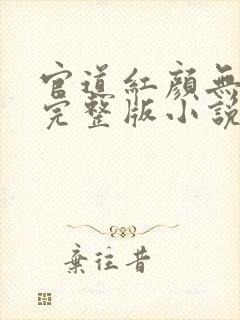 官道紅顏無
完整版小說
棄往昔